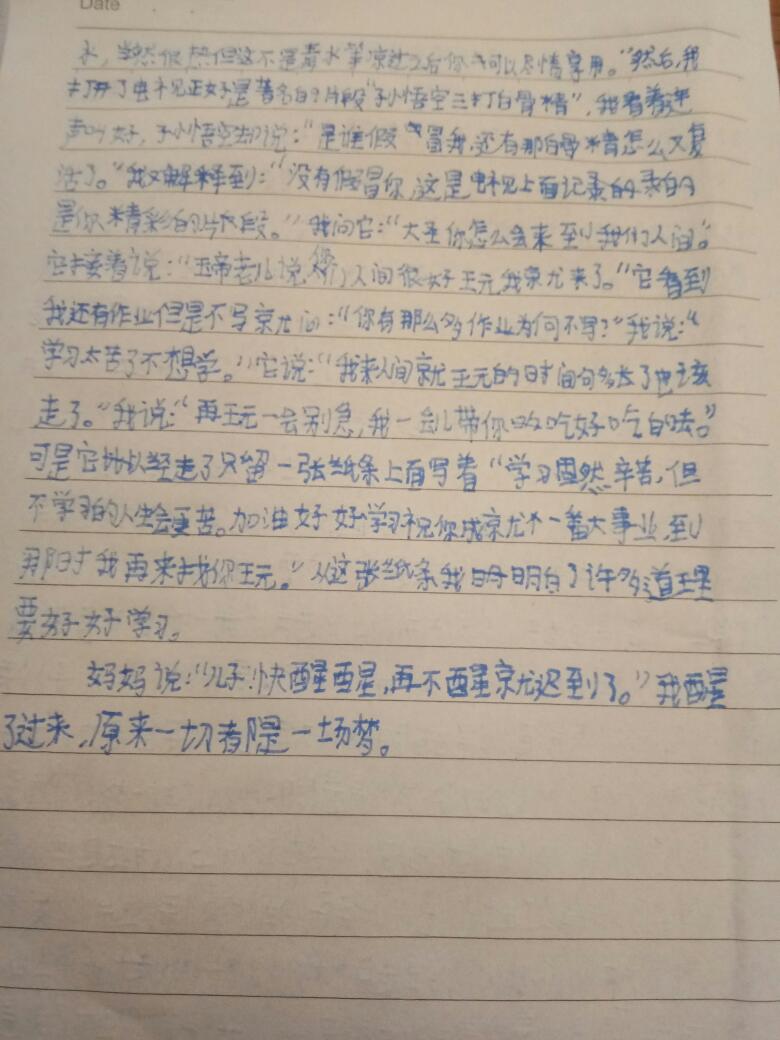 Date
水，当然很热但这不是毒水等凉过之后你就可以尽情享用。"然后，我
打开了电视正好是著名的片段"孙悟空三打白骨精"，我看着连
声叫好，孙悟空却说："是谁假冒我，还有那白骨精怎么又复
活了。"我又解释到："没有假冒你，这是电视上面记录的录的
是你精彩的片段。"我问它："大圣你怎么会来到我们人间。"
它接着说："玉帝老儿说你们人间很好玩我就来了。"它看到
我还有作业但是不写就问："你有那么多作业为何不写？"我说："
学习太苦了不想学。"它说："我来人间就玩的时间句多长了也该
走了。"我说："再玩一会别急，我一会儿带你吃好吃的去。"
可是它以经走了只留一张纸条上面写着"学习固然辛苦，但
不学习的人生会更苦。加油好好学习祝你成就一番大事业，到
那时我再来找你玩。"从这张纸条我明白了许多道理
要好好学习。
妈妈说："儿子快醒醒，再不醒就迟到了。"我醒
了过来，原来一切都是一场梦。